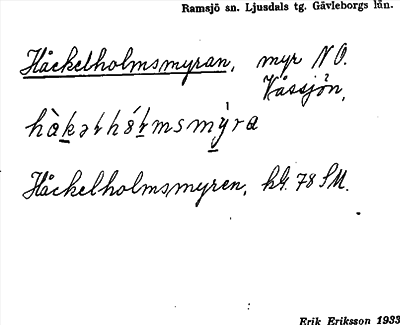 Ramsjö sn. Ljusdals tg. Gävleborgs län.
Håckelholmsmyran, myr NO.
Våssjön,
Håckelholmsmyren, hd. 78 SM.
Erik Eriksson 1933